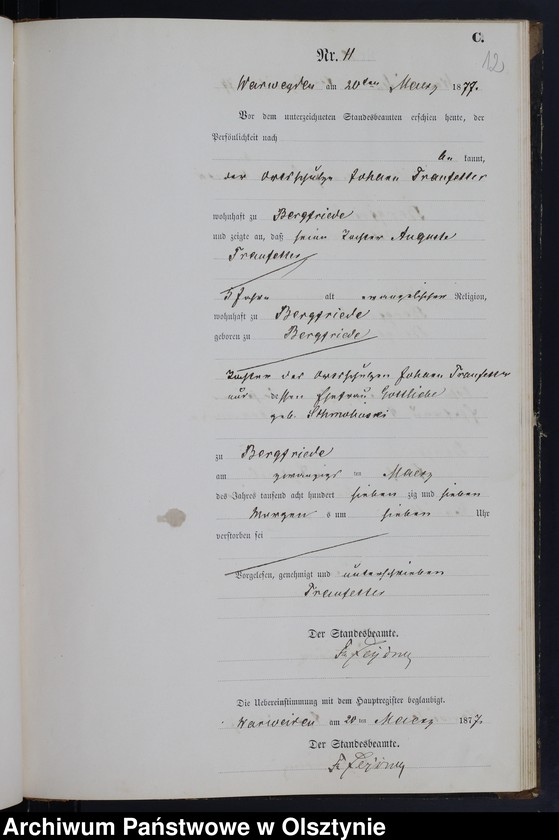 C.
12
Nr. 11
Warweyden am 20ten Maerz 1877.
Vor dem unterzeichneten Standesbeamten erschien heute, der
Persönlichkeit nach
be kannt,
der Ortsschulze Johann
wohnhaft zu Bergfriede
und zeigte an, daß seine Tochter Auguste
5 Jahre alt evangelischer Religion,
wohnhaft zu Bergfriede
geboren zu Bergfriede
Tochter des Ortsschulzen Johann
und dessen Ehefrau Gottliebe
geb.
zu Bergfriede
am zwanzigs ten Maerz
des Jahres tausend acht hundert sieben zig und sieben
Morgen s um sieben Uhr
verstorben sei
Vorgelesen, genehmigt und unterschrieben
Der Standesbeamte.
Die Uebereinstimmung mit dem Hauptregister beglaubigt.
Warweiden am 20 ten Maerz 1877.
Der Standesbeamte.
Archiwum Państwowe w Olsztynie